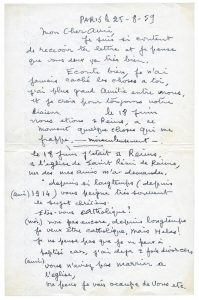 PARIS le 25-8-59
Mon Cher Ami
Je suis si content
de recevoir ta lettre et je pense
que vous êtes très bien.
Ecoute bien, je n'ai
jamais caché les choses a toi
j'ai plus grand Amitié entre nous,
et je crois pour toujours notre
le 18 juin
nous étions a Reims, a ce
moment quelque choses qui me
frappe,
le 18 juin j'étais a Reims,
a l'église de Saint Rémi de Reims,
un des mes amis m'a demandé,
" depuis si longtemps (depuis
1914) vous peigne très souvent
le sujet chrétien.
Etes-vous catholique?
(moi) non pas encore, depuis longtemps
je veux être catholique, mais Helas!
je ne pense pas que je
baptisé car, j'ai deja 2 fois divorcés,
vous n'avez pas marrier a
l'église,
je vais occupe de vous etc.